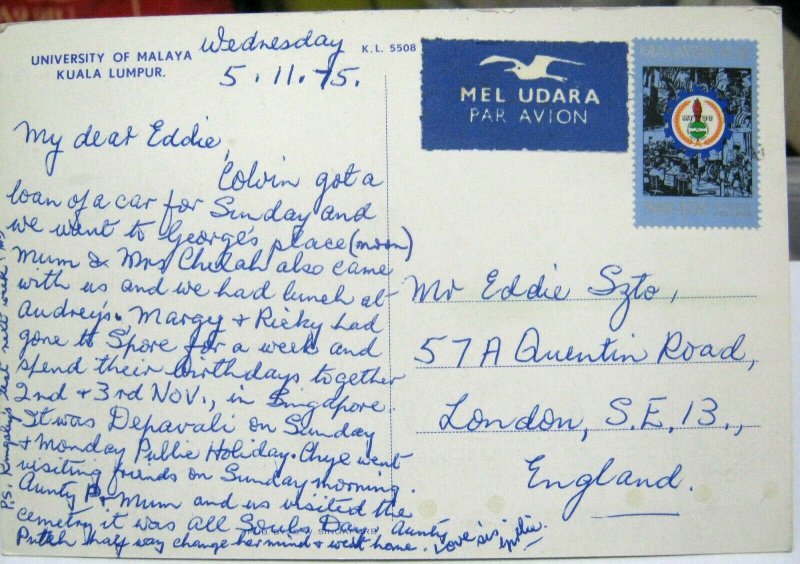 UNIVERSITY OF MALAYA
KUALA LUMPUR.
Wednesday
5.11.75.
K.L. 5508
MEL UDARA
PAR AVION
My dear Eddie,
Colvin got a
loan of a car for Sunday and
we want to George's place (moon)
Mum & Mrs Chelah also came
with us and we had lunch at
Audrey's. Margy & Ricky had
gone to S'pore for a week and
spend their birthdays together
2nd & 3rd Nov., in Singapore.
It was Depavali on Sunday
& Monday Public Holiday. Chye went
visiting friends on Sunday morning.
Aunty P & Mum and us visited the
cemetry it was All Souls Day. Aunty
Puteh half way change her mind & went home. Love sis
P.S. Kingsley's test next week
Mr Eddie Szto,
57A Quentin Road,
London, S.E. 13.,
England.